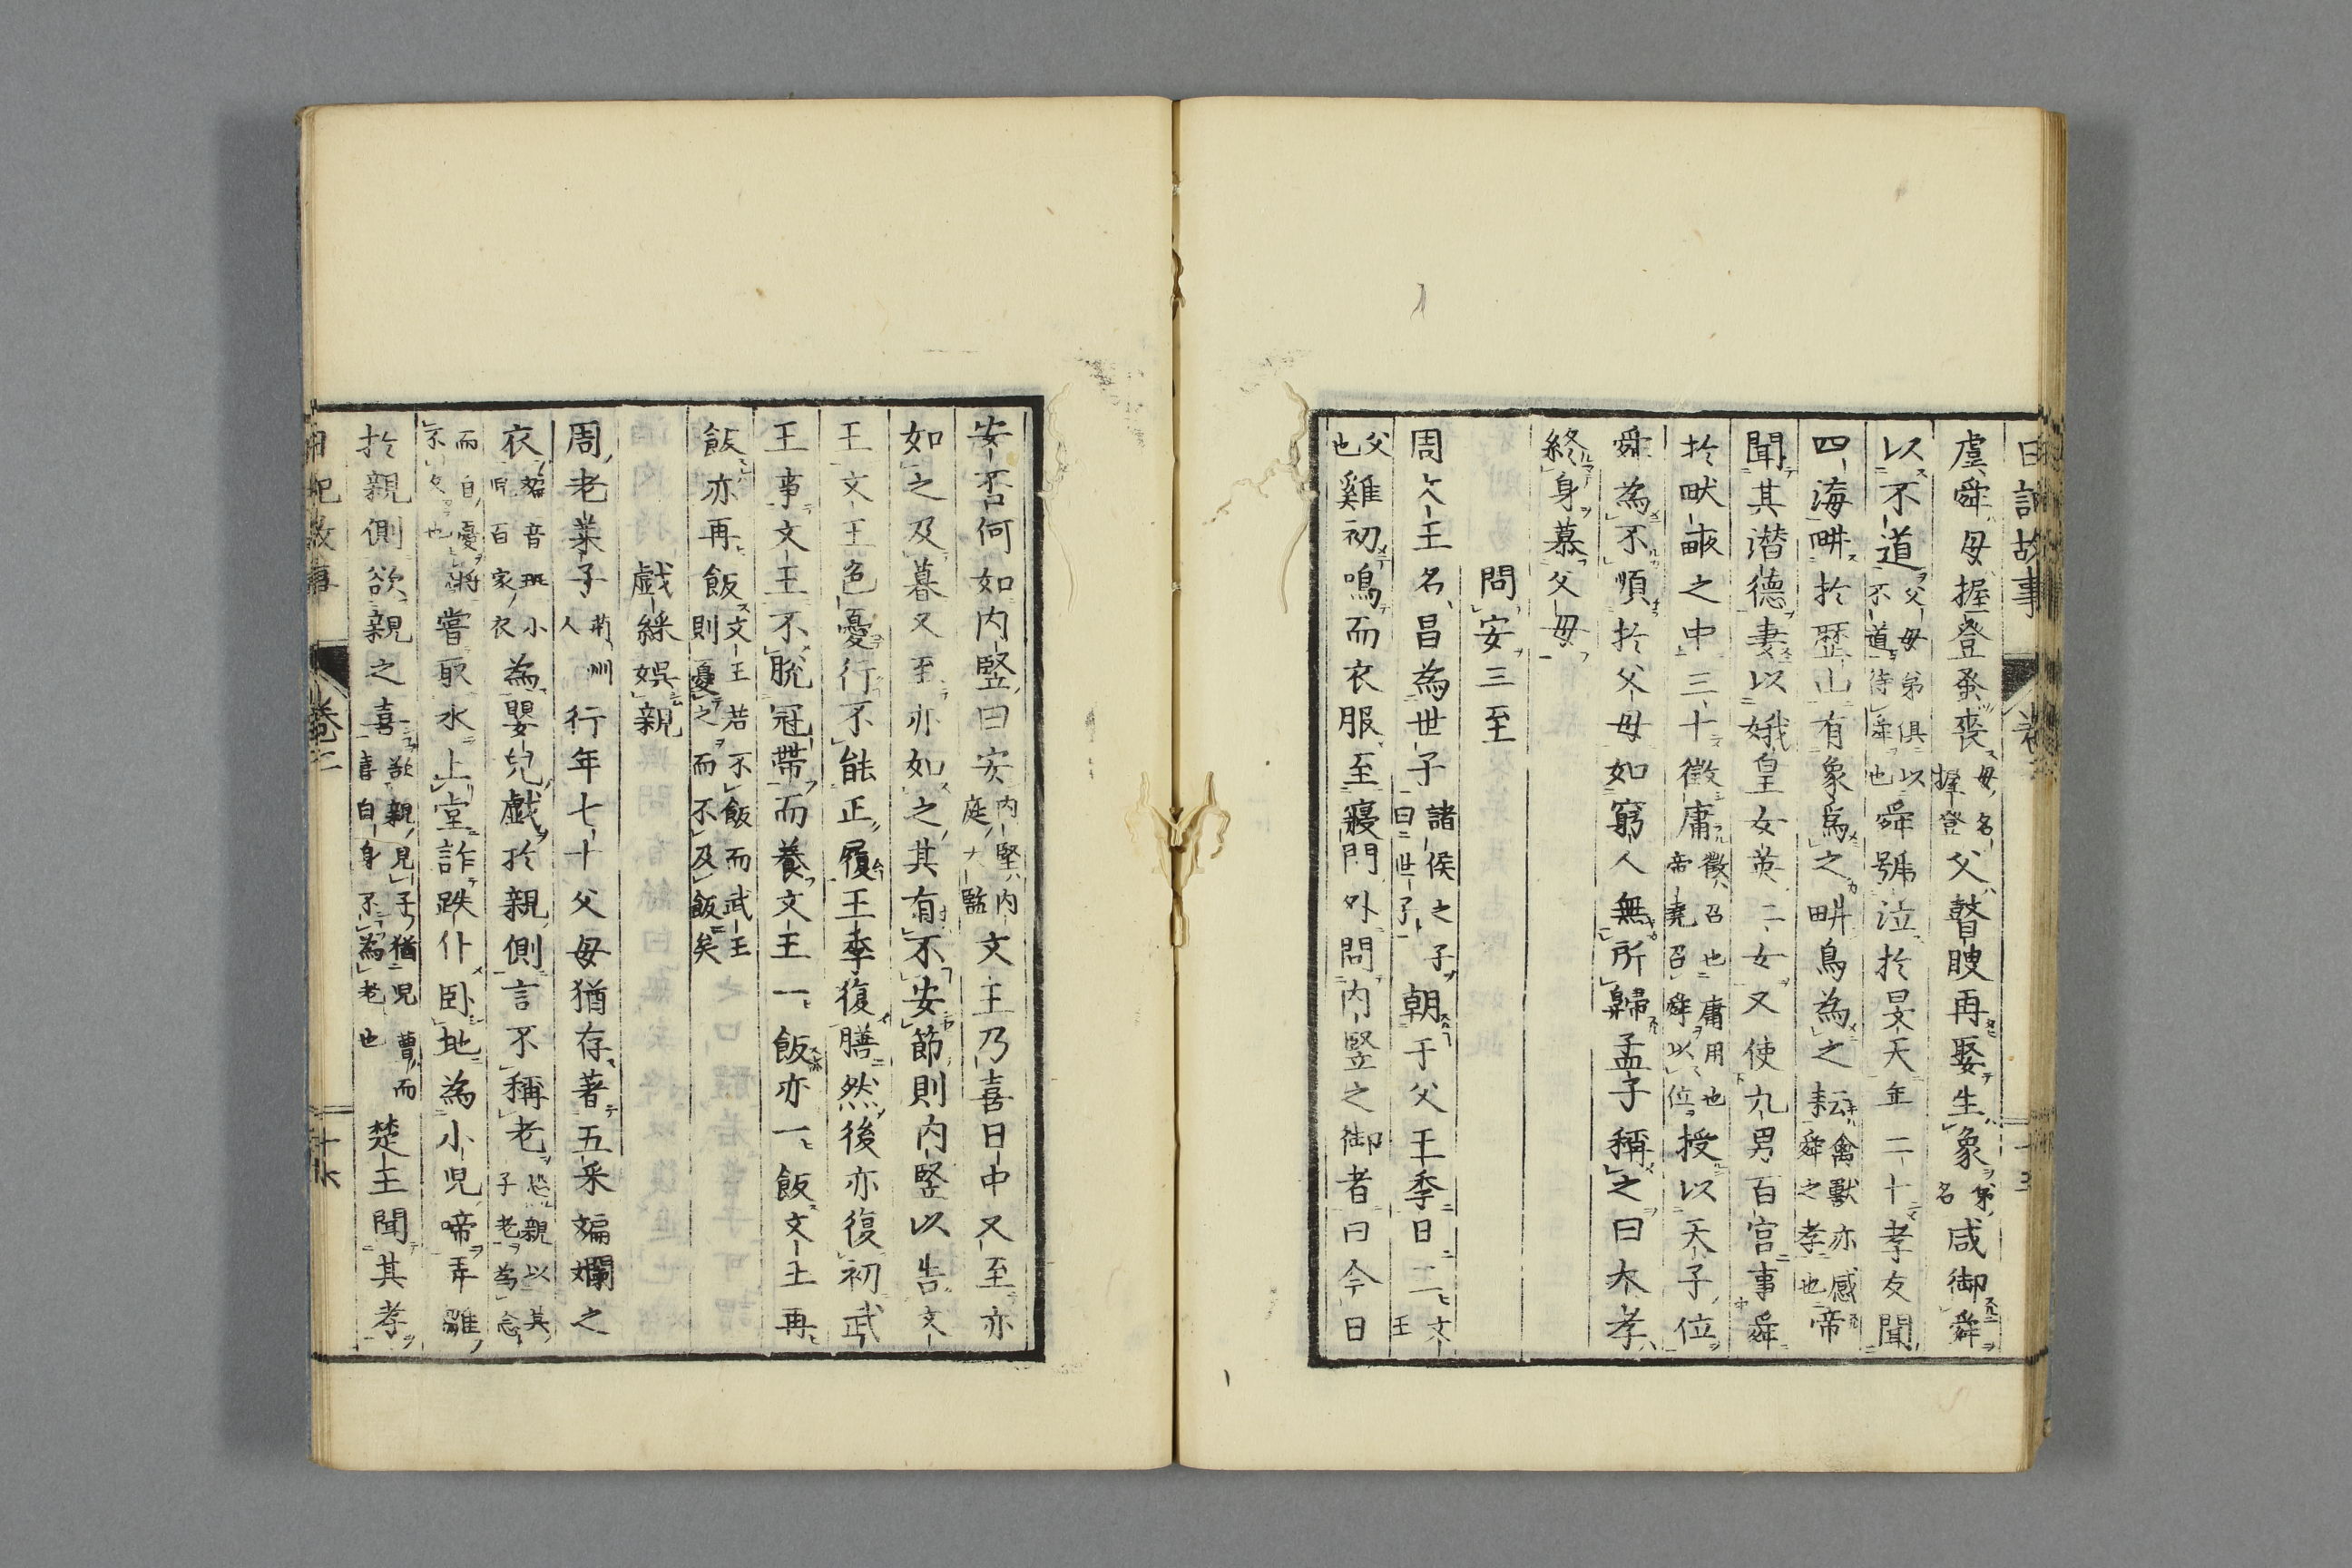 日記故事 卷二 十五
虞舜母握登蚤喪母名握登父瞽瞍再娶生象弟名咸御舜
以不道父母弟俱以不道待舜也舜號泣於旻天年二十孝友聞
四海畊於歷山有象爲之畊鳥為之耘禽獸亦感舜之孝也帝
聞其潜德妻以娥皇女英二女又使九男百官事舜
於畎畝之中三十徵庸徵召也庸用也帝堯召舜以位授以天子位
舜為不順於父母如窮人無所歸孟子稱之曰大孝
終身慕父母
問安三至
周文王名昌為世子諸侯之子曰世子朝于父王季日三文王
父也雞初鳴而衣服至寢門外問內竪之御者曰今日
安否何如内竪曰安内竪内庭小監文王乃喜日中又至亦
如之及暮又至亦如之其有不安節則内竪以告文
王文王色憂行不能正履王季復膳然後亦復初武
王事文王不脫冠帶而養文王一飯亦一飯文王再
飯亦再飯文王若不飯而武王則憂之而不及飯矣
戯綵娯親
周老萊子荊州人行年七十父母猶存著五采斒斕之
衣斒音班小兒百家衣為嬰兒戯於親側言不稱老恐親以其子老為念
而自憂將不久也嘗取水上堂詐跌仆卧地為小兒啼弄雛
於親側欲親之喜欲親見子猶兒曹而喜自身不為老也楚王聞其孝
日記故事 卷二 十六